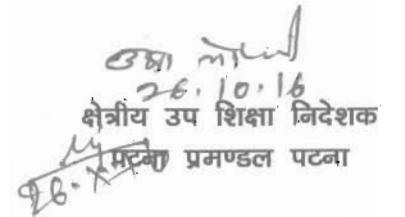 26.10.16
क्षेत्रीय उप शिक्षा निदेशक
पटना प्रमण्डल पटना